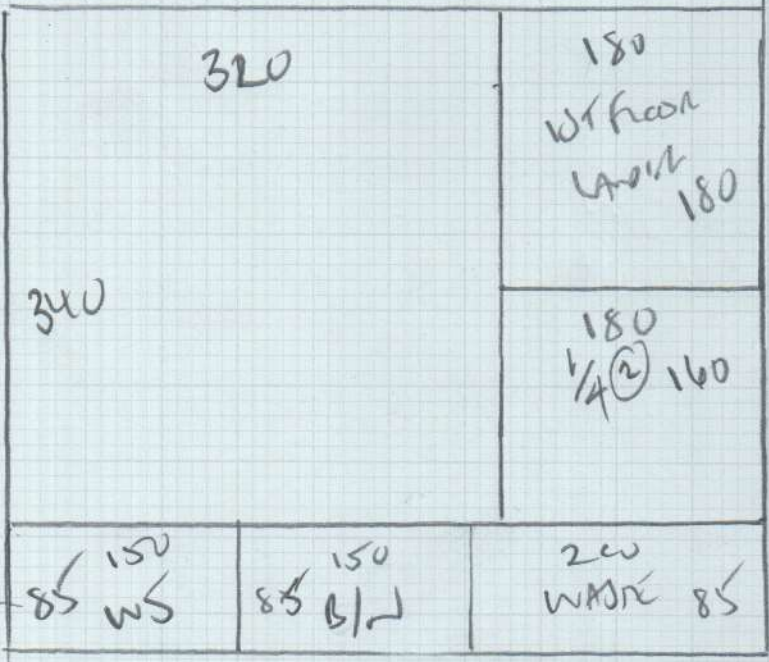 320
340
180
1ST FLOOR
LANDING
180
180
1/4 ② 160
150
85 WS
150
85 B/W
200
WASTE 85